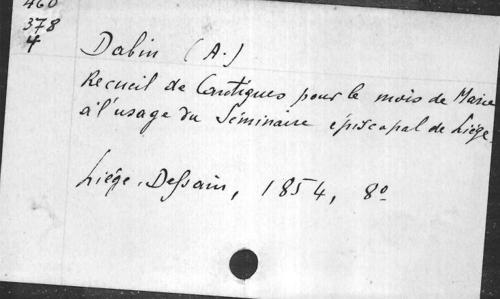 460
378
4
Dabin (A.)
Recueil de Cantiques pour le mois de Marie
à l'usage du Séminaire épiscopal de Liége.
Liége, Dessain, 1854, 8º